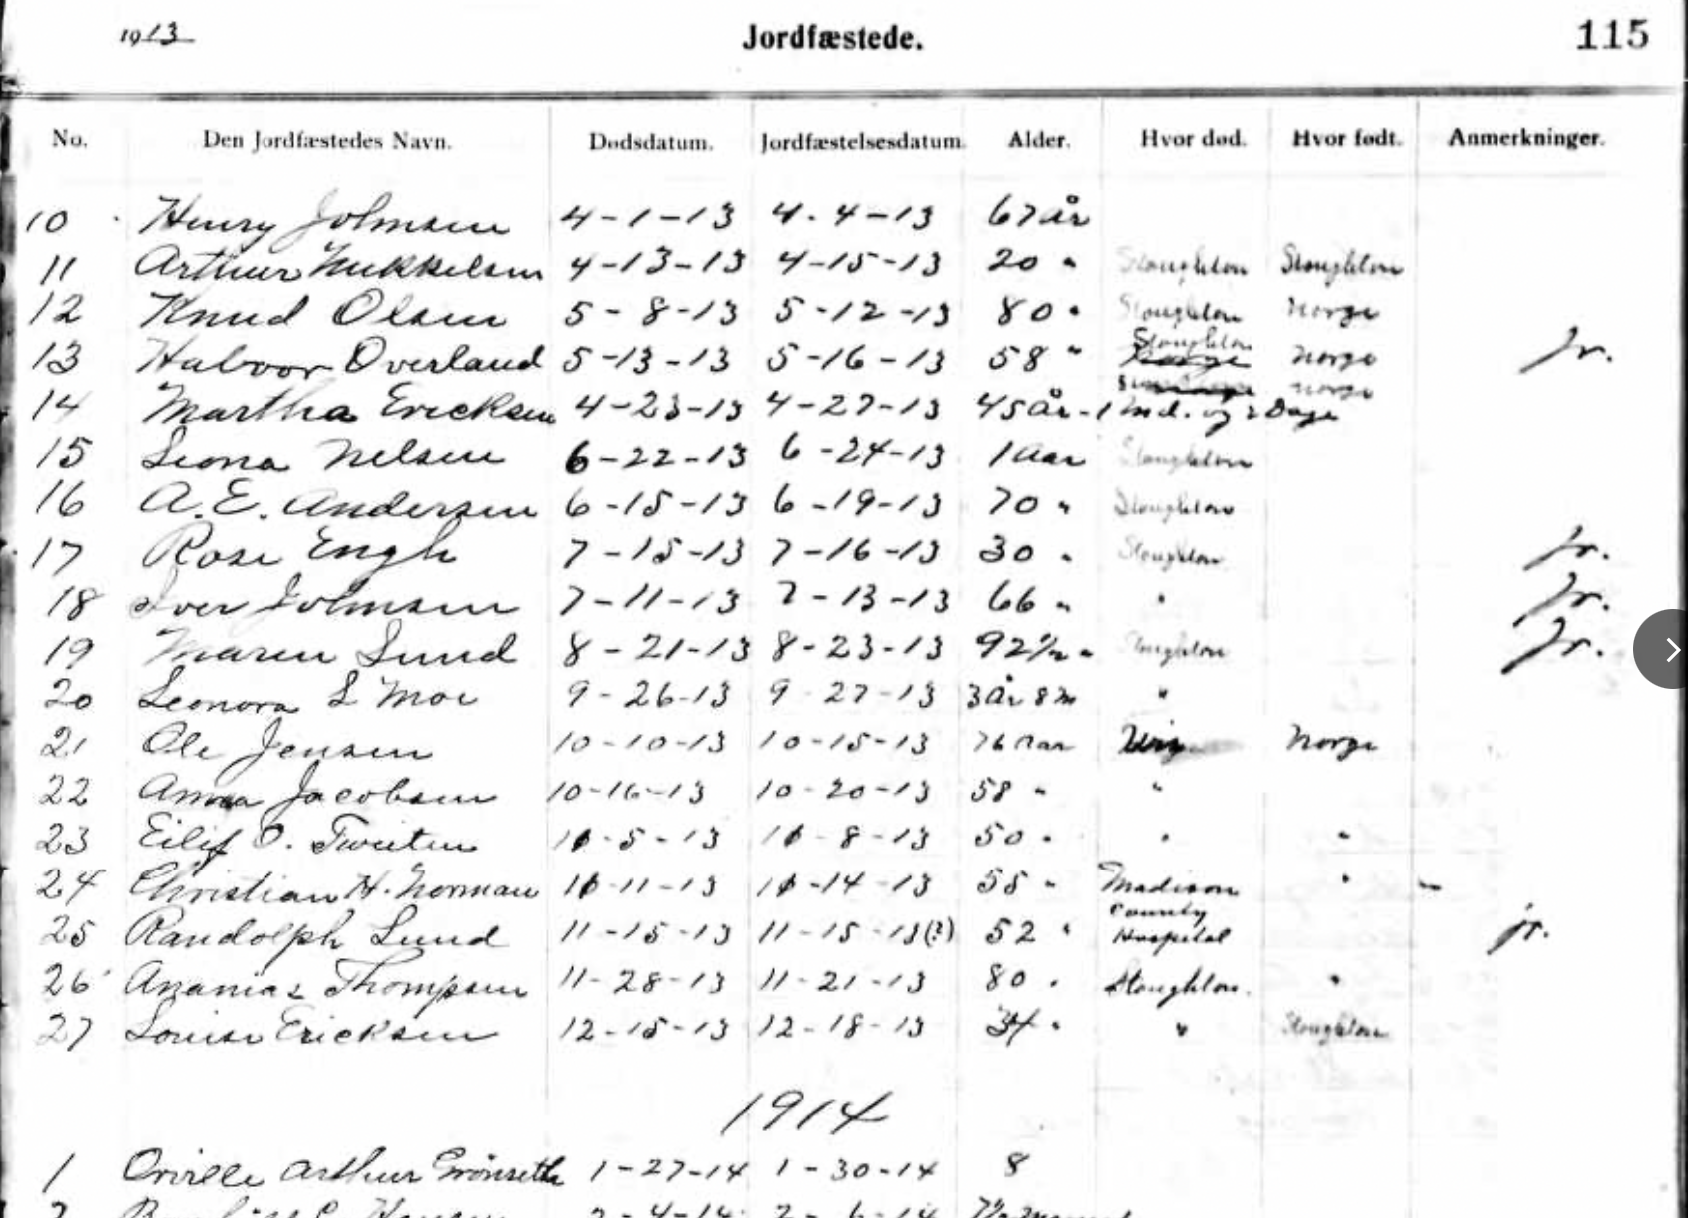 1913 Jordfæstede. 115
No. Den Jordfæstedes Navn. Dødsdatum. Jordfæstelsesdatum. Alder. Hvor død. Hvor født. Anmerkninger.
10 Henry Johnsen 4-1-13 4-4-13 67 år
11 Arthur Mikkelsen 4-13-13 4-15-13 20 " Stoughton Stoughton
12 Knud Olsen 5-8-13 5-12-13 80 " Stoughton Norge
13 Halvor Overland 5-13-13 5-16-13 58 " Stoughton Norge Jr.
14 Martha Ericksen 4-23-13 4-27-13 45 år - 1 Md. og 2 Dage Norge
15 Leona Nelsen 6-22-13 6-24-13 1 aar Stoughton
16 A. E. Andersen 6-15-13 6-19-13 70 " Stoughton
17 Rose Engh 7-15-13 7-16-13 30 " Stoughton Jr.
18 Iver Johnsen 7-11-13 7-13-13 66 " " Jr.
19 Maren Lund 8-21-13 8-23-13 92½ " Stoughton Jr.
20 Leonora L Moe 9-26-13 9-27-13 3 år 8 m "
21 Ole Jensen 10-10-13 10-15-13 76 aar Norge
22 Anna Jacobsen 10-16-13 10-20-13 58 " "
23 Eilif O. Tweten 11-5-13 11-8-13 50 " " "
24 Christian H. Norman 11-11-13 11-14-13 55 " Madison "
25 Randolph Lund 11-15-13 11-15-13(?) 52 " County Hospital jr.
26 Ananias Thompsen 11-28-13 11-21-13 80 " Stoughton. "
27 Louise Ericksen 12-15-13 12-18-13 34 " " Stoughton
1914
1 Orville Arthur Grönseth 1-27-14 1-30-14 8